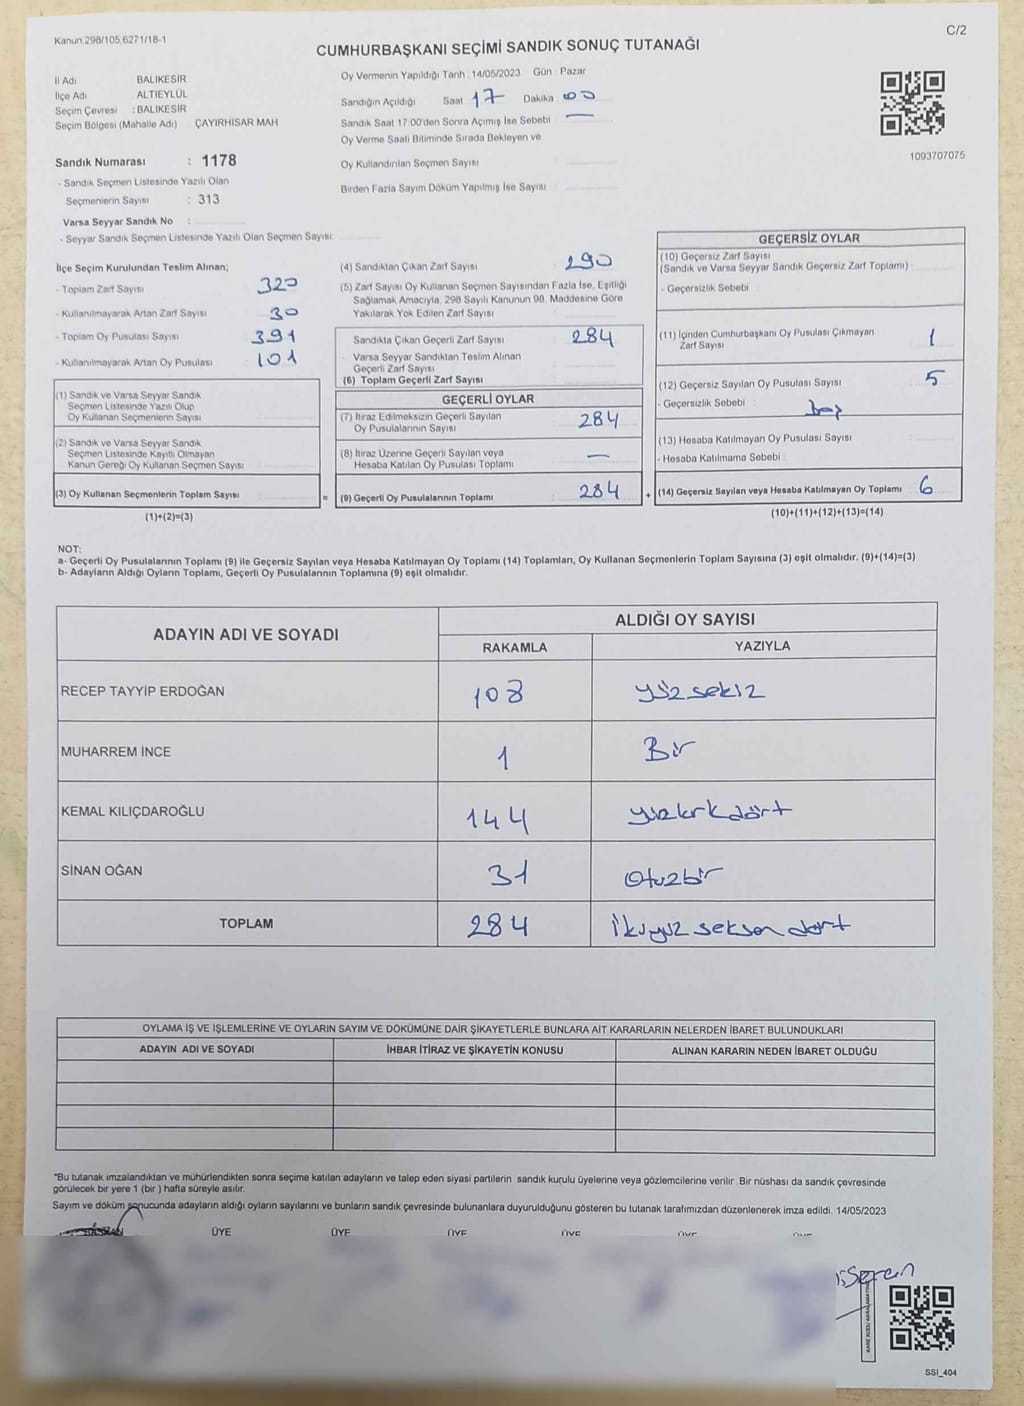 Kanun 298/105,6271/18-1
C/2
CUMHURBAŞKANI SEÇİMİ SANDIK SONUÇ TUTANAĞI
İl Adı BALIKESİR
İlçe Adı ALTIEYLÜL
Seçim Çevresi : BALIKESİR
Seçim Bölgesi (Mahalle Adı) : ÇAYIRHİSAR MAH
Sandık Numarası : 1178
- Sandık Seçmen Listesinde Yazılı Olan
Seçmenlerin Sayısı : 313
Varsa Seyyar Sandık No :
- Seyyar Sandık Seçmen Listesinde Yazılı Olan Seçmen Sayısı:
Oy Vermenin Yapıldığı Tarih : 14/05/2023 Gün : Pazar
Sandığın Açıldığı Saat 17 Dakika 00
Sandık Saat 17:00'den Sonra Açılmış İse Sebebi : —
Oy Verme Saati Bitiminde Sırada Bekleyen ve
Oy Kullandırılan Seçmen Sayısı
Birden Fazla Sayım Döküm Yapılmış İse Sayısı
1093707075
İlçe Seçim Kurulundan Teslim Alınan;
- Toplam Zarf Sayısı : 320
- Kullanılmayarak Artan Zarf Sayısı 30
- Toplam Oy Pusulası Sayısı : 391
- Kullanılmayarak Artan Oy Pusulası : 101
(1) Sandık ve Varsa Seyyar Sandık
Seçmen Listesinde Yazılı Olup
Oy Kullanan Seçmenlerin Sayısı
(2) Sandık ve Varsa Seyyar Sandık
Seçmen Listesinde Kayıtlı Olmayan
Kanun Gereği Oy Kullanan Seçmen Sayısı
(3) Oy Kullanan Seçmenlerin Toplam Sayısı =
(1)+(2)=(3)
(4) Sandıktan Çıkan Zarf Sayısı : 290
(5) Zarf Sayısı Oy Kullanan Seçmen Sayısından Fazla İse, Eşitliği
Sağlamak Amacıyla, 298 Sayılı Kanunun 98. Maddesine Göre
Yakılarak Yok Edilen Zarf Sayısı
Sandıkta Çıkan Geçerli Zarf Sayısı : 284
Varsa Seyyar Sandıktan Teslim Alınan
Geçerli Zarf Sayısı
(6) Toplam Geçerli Zarf Sayısı
GEÇERLİ OYLAR
(7) İtiraz Edilmeksizin Geçerli Sayılan
Oy Pusulalarının Sayısı : 284
(8) İtiraz Üzerine Geçerli Sayılan veya
Hesaba Katılan Oy Pusulası Toplamı —
(9) Geçerli Oy Pusulalarının Toplamı : 284 +
GEÇERSİZ OYLAR
(10) Geçersiz Zarf Sayısı
(Sandık ve Varsa Seyyar Sandık Geçersiz Zarf Toplamı) :
- Geçersizlik Sebebi :
(11) İçinden Cumhurbaşkanı Oy Pusulası Çıkmayan
Zarf Sayısı 1
(12) Geçersiz Sayılan Oy Pusulası Sayısı : 5
- Geçersizlik Sebebi :
(13) Hesaba Katılmayan Oy Pusulası Sayısı :
- Hesaba Katılmama Sebebi :
(14) Geçersiz Sayılan veya Hesaba Katılmayan Oy Toplamı 6
(10)+(11)+(12)+(13)=(14)
NOT:
a- Geçerli Oy Pusulalarının Toplamı (9) ile Geçersiz Sayılan veya Hesaba Katılmayan Oy Toplamı (14) Toplamları, Oy Kullanan Seçmenlerin Toplam Sayısına (3) eşit olmalıdır. (9)+(14)=(3)
b- Adayların Aldığı Oyların Toplamı, Geçerli Oy Pusulalarının Toplamına (9) eşit olmalıdır.
ADAYIN ADI VE SOYADI
ALDIĞI OY SAYISI
RAKAMLA YAZIYLA
RECEP TAYYİP ERDOĞAN 108 yüz sekiz
MUHARREM İNCE 1 Bir
KEMAL KILIÇDAROĞLU 144 yüzkırkdört
SİNAN OĞAN 31 Otuzbir
TOPLAM 284 İkiyüz seksen dört
OYLAMA İŞ VE İŞLEMLERİNE VE OYLARIN SAYIM VE DÖKÜMÜNE DAİR ŞİKAYETLERLE BUNLARA AİT KARARLARIN NELERDEN İBARET BULUNDUKLARI
ADAYIN ADI VE SOYADI İHBAR İTİRAZ VE ŞİKAYETİN KONUSU ALINAN KARARIN NEDEN İBARET OLDUĞU
*Bu tutanak imzalandıktan ve mühürlendikten sonra seçime katılan adayların ve talep eden siyasi partilerin sandık kurulu üyelerine veya gözlemcilerine verilir .Bir nüshası da sandık çevresinde
görülecek bir yere 1 (bir ) hafta süreyle asılır.
Sayım ve döküm sonucunda adayların aldığı oyların sayılarını ve bunların sandık çevresinde bulunanlara duyurulduğunu gösteren bu tutanak tarafımızdan düzenlenerek imza edildi. 14/05/2023
BAŞKAN ÜYE ÜYE ÜYE ÜYE ÜYE ÜYE
SSI_404